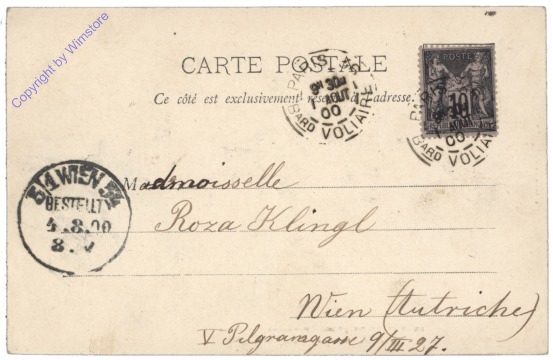 Copyright by Wimstore
CARTE POSTALE
Ce côté est exclusivement réservé à l'adresse.
PARIS
9E 30M
1 AOUT
00
BARD VOLTAIRE
10
PARIS
00
BARD VOLTAI
3/4 WIEN 54
BESTELLT
4.8.00
8.V
Madmoisselle
Roza Klingl
Wien (Autriche)
V Pilgramgasse 9/III 27.